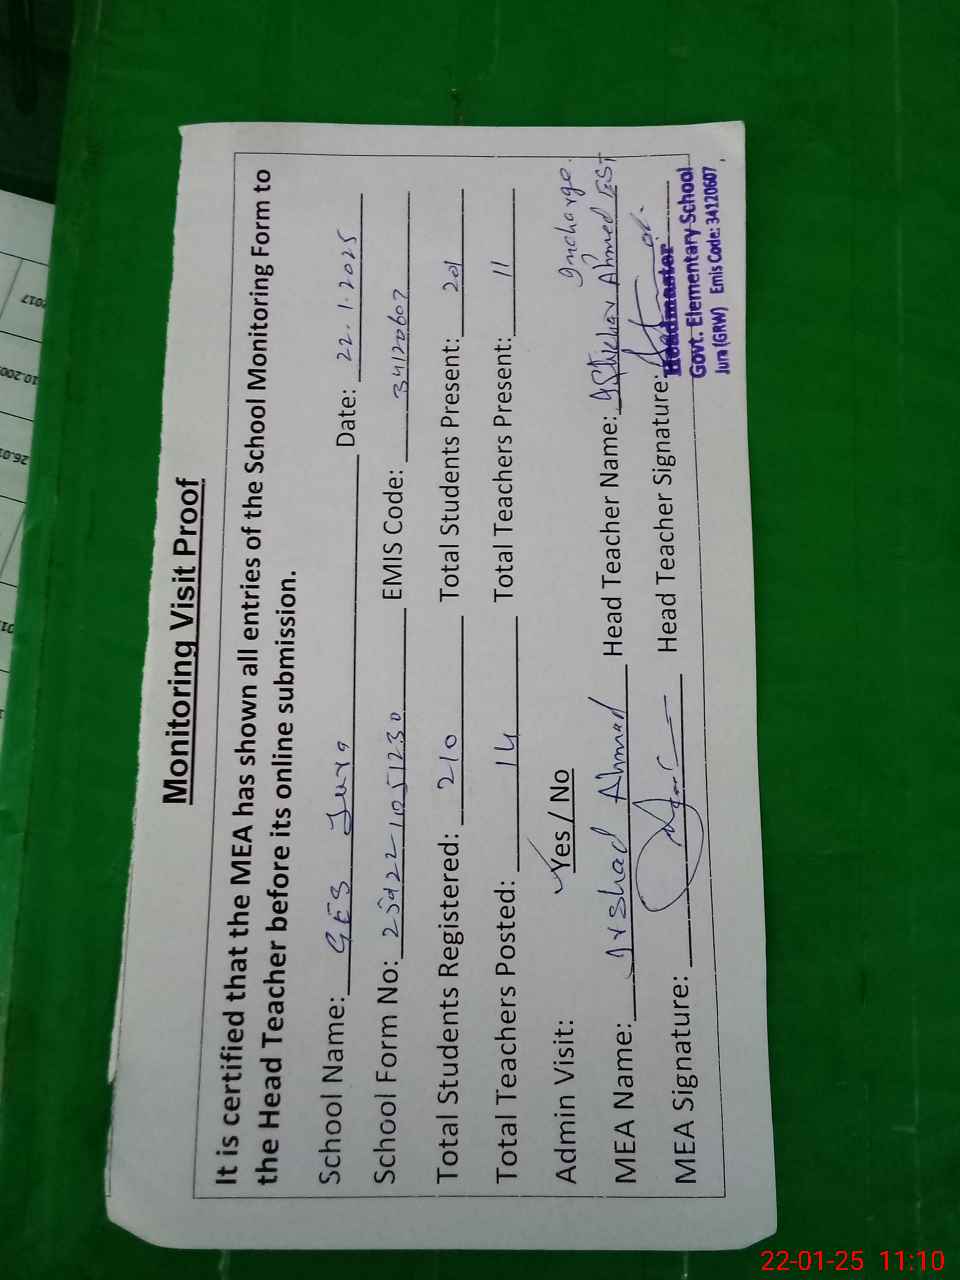 Monitoring Visit Proof
It is certified that the MEA has shown all entries of the School Monitoring Form to
the Head Teacher before its online submission.
School Name: GES Jura Date: 22.1.2025
School Form No: EMIS Code: 34120607
Total Students Registered: 210 Total Students Present: 201
Total Teachers Posted: 14 Total Teachers Present: 11
Admin Visit: Yes / No Incharge.
MEA Name: Irshad Ahmad Head Teacher Name: Iftikhar Ahmed EST
MEA Signature: Head Teacher Signature:
Headmaster
Govt. Elementary School
Jura (GRW) Emis Code: 34120607
2017
26.01
22-01-25 11:10